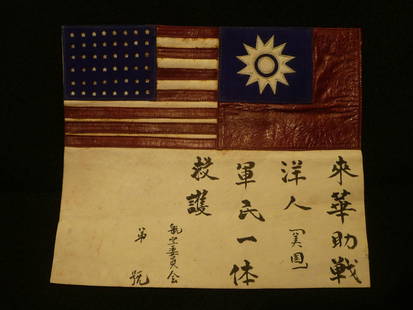 來華助戰
洋人（美國）
軍民一体
救護
航空委員会
第 號